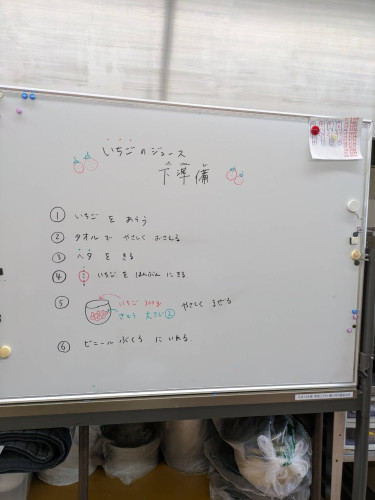 いちごのジュース
下準備
① いちごを あらう
② タオルで やさしく おさえる
③ ヘタ を きる
④ いちごを はんぶんに きる
⑤ いちご 300g やさしく まぜる
さとう 大さじ②
⑥ ビニールぶくろ に いれる